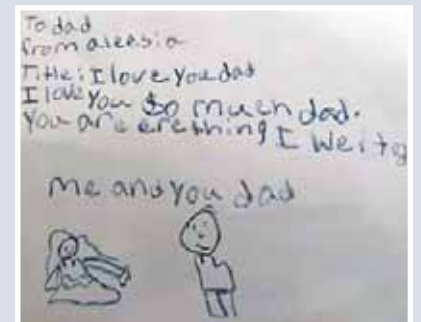 To dad
from aleesia
Title: I love you dad
I love you so much dad.
you are erething I
me and you dad